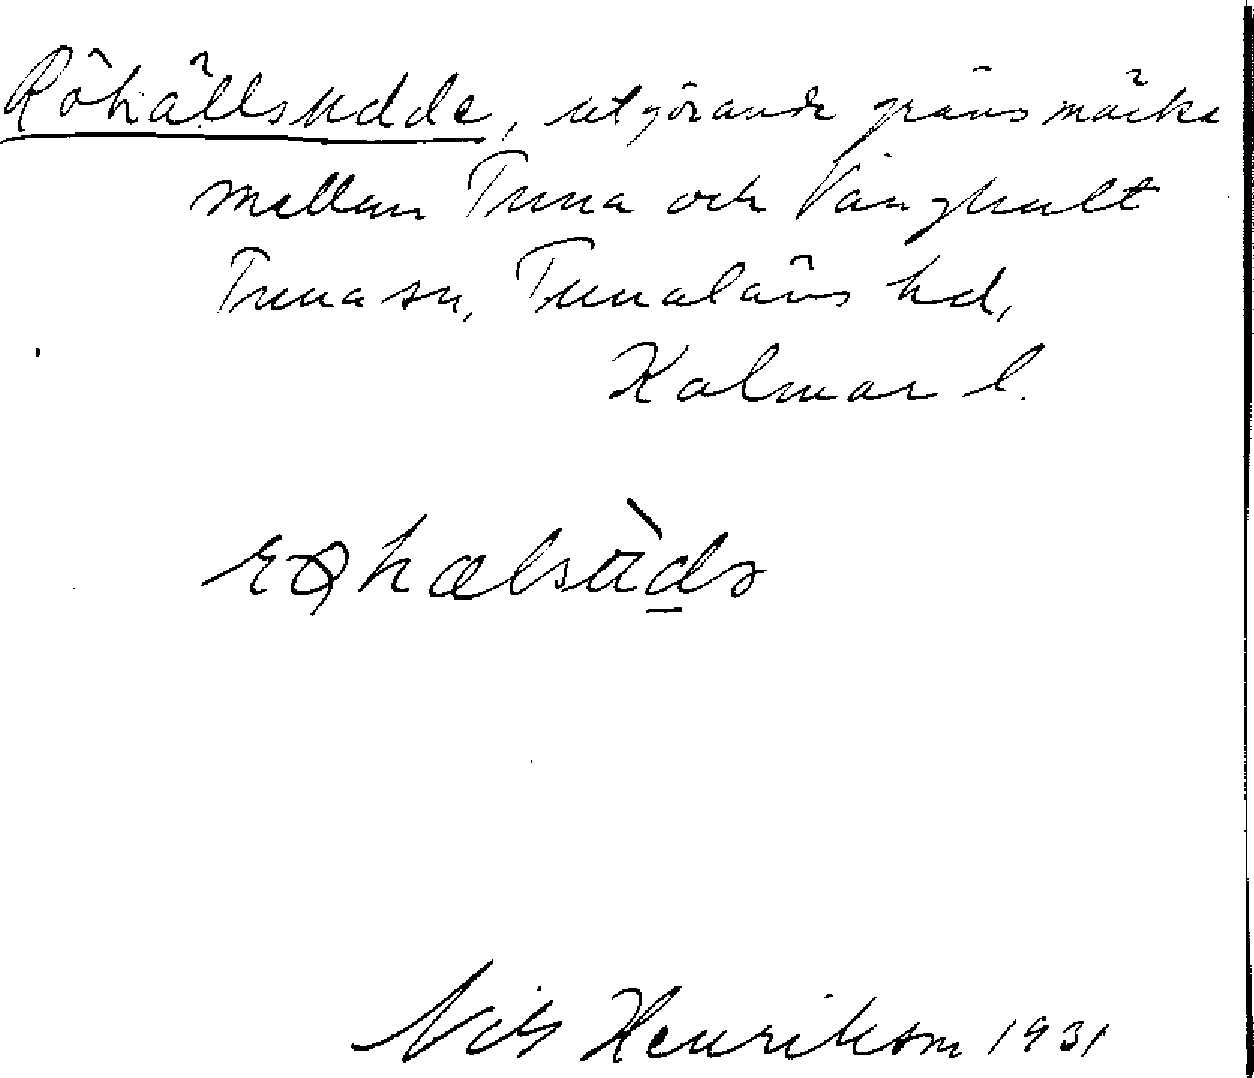 Röhällsudde, utgörande gränsmärke
mellan Tuna och Vänghult
Tuna sn, Tunaläns hd,
Kalmar l.
Nils Henrikson 1931